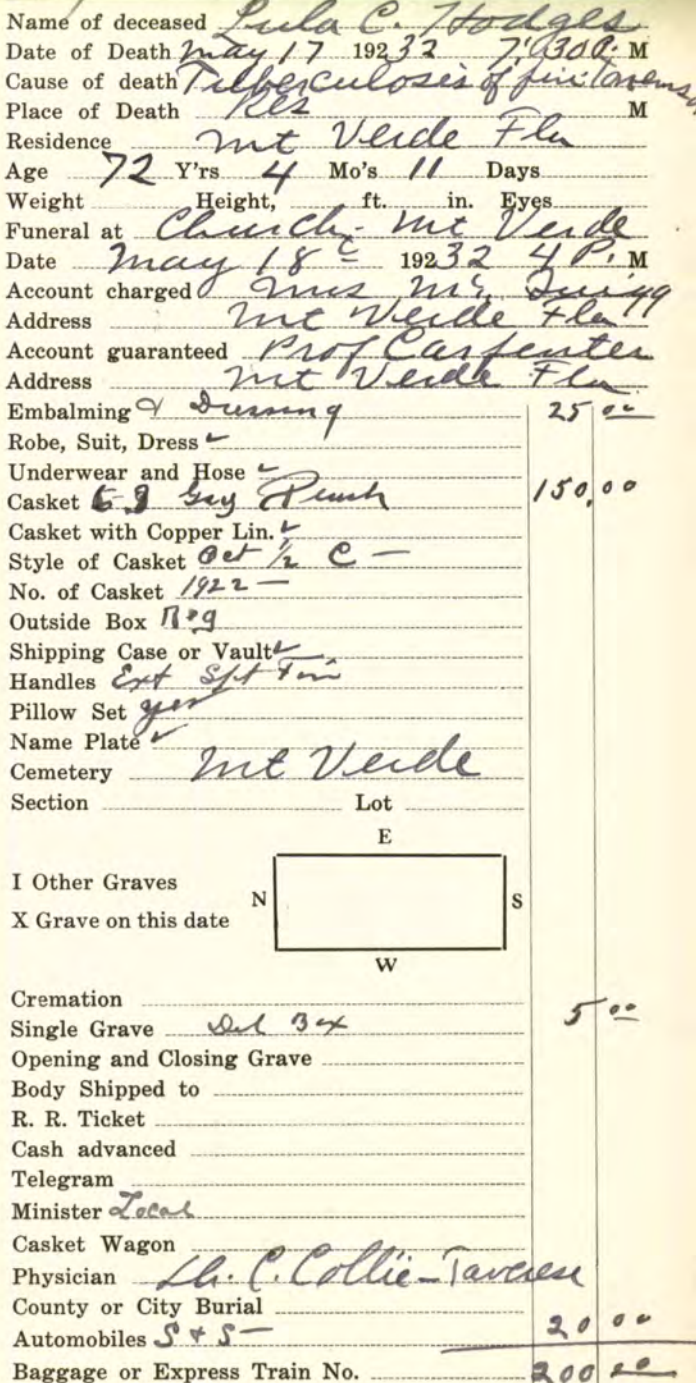 Name of deceased Lula C. Hodges
Date of Death May 17 192 32 7:30 P. M
Cause of death Tuberculosis of
Place of Death Res M
Residence Mt Verde Fla
Age 72 Y'rs 4 Mo's 11 Days
Weight Height, ft. in. Eyes
Funeral at Church - Mt Verde
Date May 18 192 32 4 P. M
Account charged Mrs Mc Quigg
Address Mt Verde Fla
Account guaranteed Prof Carpenter
Address Mt Verde Fla
Embalming & Dressing 25 00
Robe, Suit, Dress ✓
Underwear and Hose ✓
Casket Gray Plush 150.00
Casket with Copper Lin. ✓
Style of Casket Oct 1/2 C —
No. of Casket 1922 —
Outside Box Reg
Shipping Case or Vault ✓
Handles Ext
Pillow Set yes
Name Plate ✓
Cemetery Mt Verde
Section Lot
E
I Other Graves
N S
X Grave on this date
W
Cremation
Single Grave Del Box 5 00
Opening and Closing Grave
Body Shipped to
R. R. Ticket
Cash advanced
Telegram
Minister Local
Casket Wagon
Physician C. Collie - Tavares
County or City Burial
Automobiles S & S — 20 00
Baggage or Express Train No. 200 00